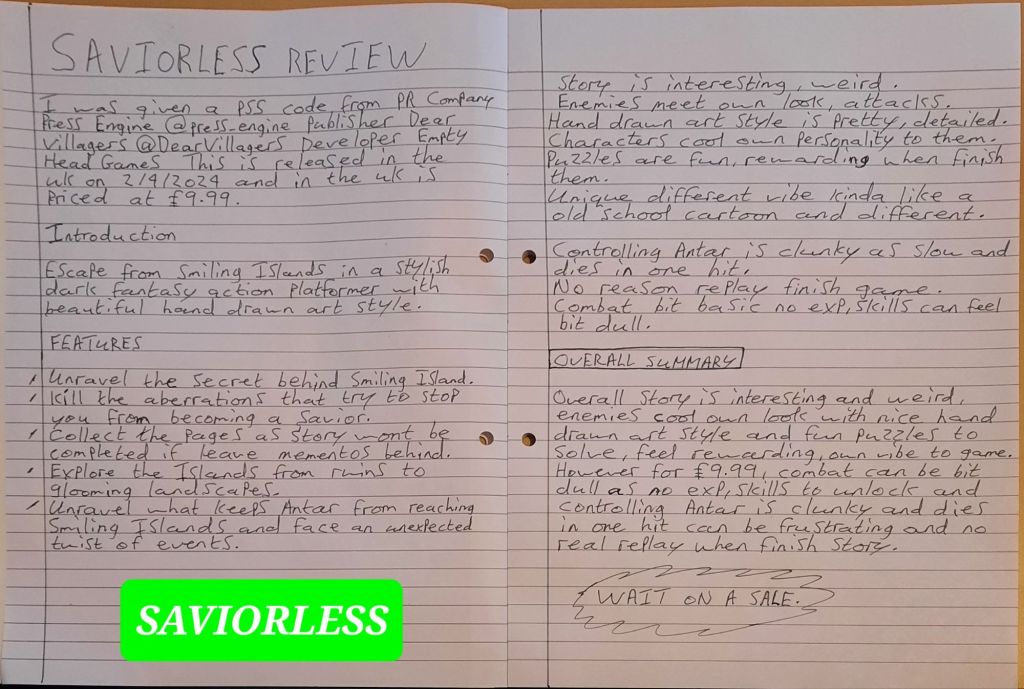 SAVIORLESS REVIEW
I was given a PS5 code from PR Company
Press Engine @press_engine publisher Dear
Villagers @DearVillagers Developer Empty
Head Games This is released in the
uk on 2/4/2024 and in the uk is
Priced at £9.99.
Introduction
Escape from Smiling Islands in a stylish
dark fantasy action platformer with
beautiful hand drawn art style.
FEATURES
Unravel the secret behind Smiling Island.
Kill the aberrations that try to stop
you from becoming a Savior.
Collect the pages as story wont be
completed if leave mementos behind.
Explore the Islands from ruins to
glooming landscapes.
Unravel what keeps Antar from reaching
Smiling Islands and face an unexpected
twist of events.
SAVIORLESS
Story is interesting, weird.
Enemies meet own look, attacks.
Hand drawn art style is pretty, detailed.
Characters cool own personality to them.
Puzzles are fun, rewarding when finish
them.
Unique different vibe kinda like a
old school cartoon and different.
Controlling Antar is clunky as slow and
dies in one hit.
No reason replay finish game.
Combat bit basic no exp, skills can feel
bit dull.
OVERALL SUMMARY
Overall story is interesting and weird,
enemies cool own look with nice hand
drawn art style and fun puzzles to
solve, feel rewarding, own vibe to game.
However for £9.99, combat can be bit
dull as no exp, skills to unlock and
controlling Antar is clunky and dies
in one hit can be frustrating and no
real replay when finish story.
WAIT ON A SALE.